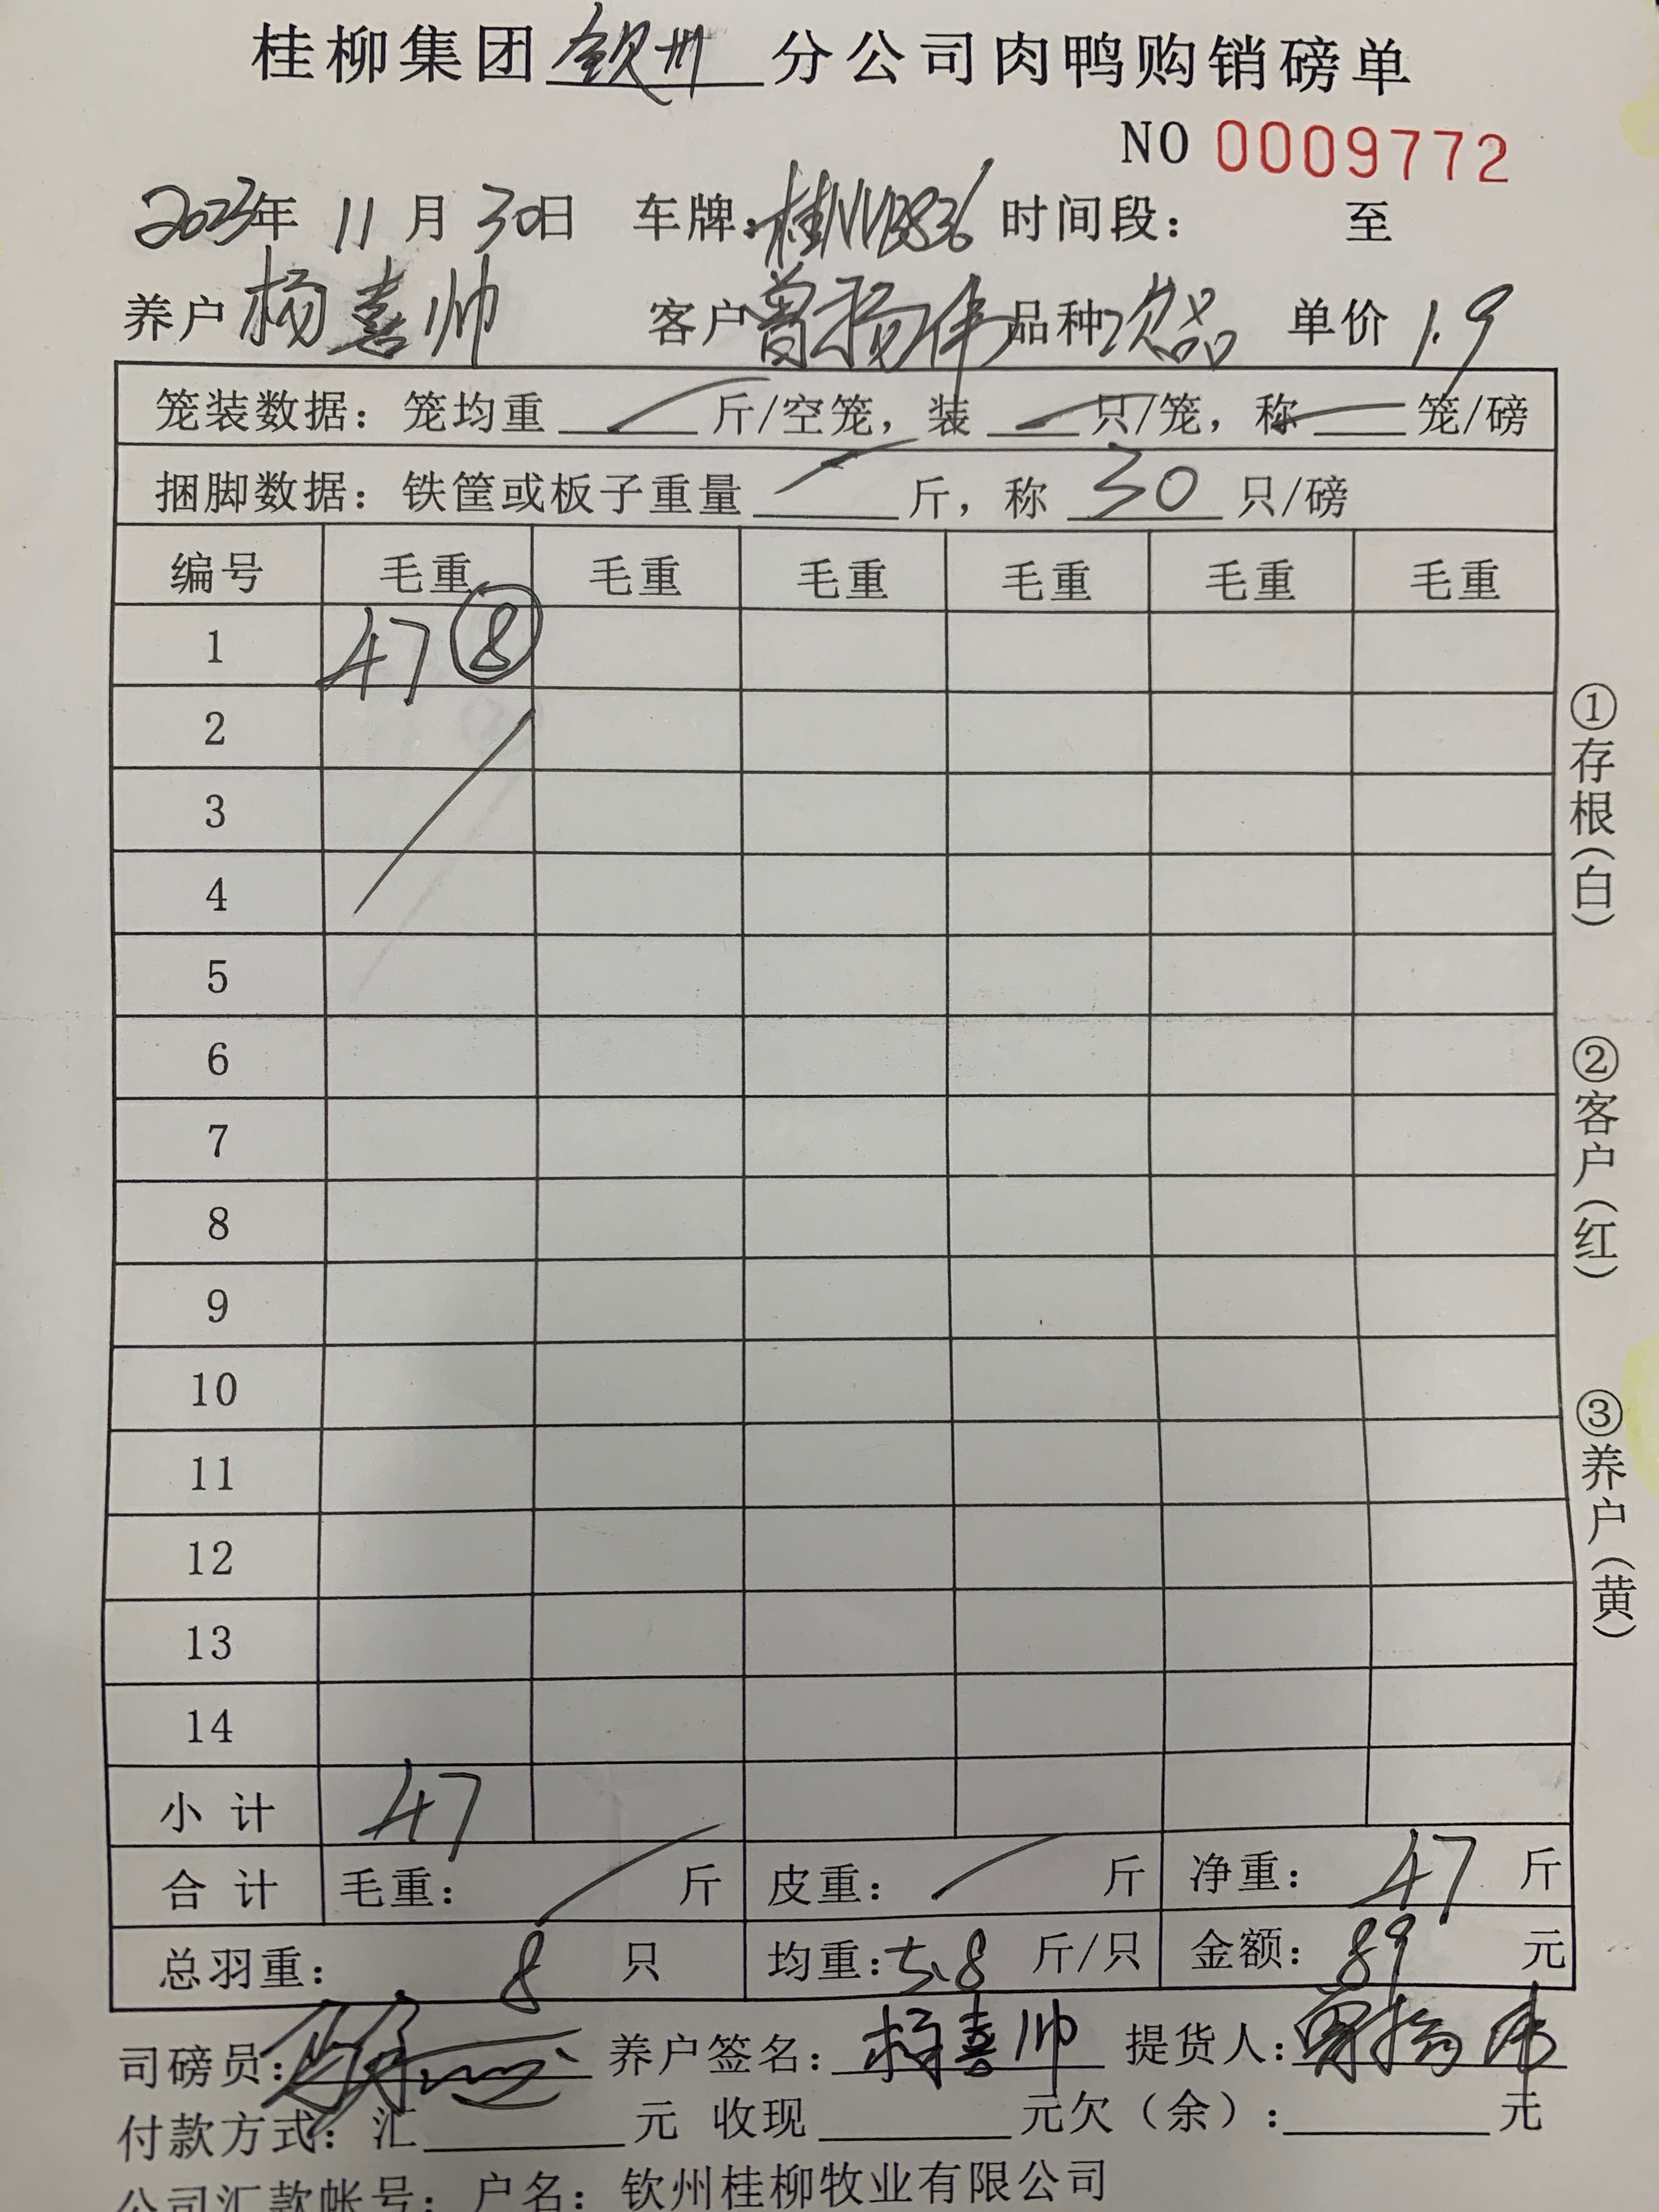 桂柳集团钦州分公司肉鸭购销磅单
NO 0009772
2023年 11月 30日 车牌: 时间段: 至
养户 杨喜帅 客户 曾扬伟 品种 次品 单价 1.9
笼装数据: 笼均重 斤/空笼, 装 只/笼, 称 笼/磅
捆脚数据: 铁筐或板子重量 斤, 称 30 只/磅
编号 毛重 毛重 毛重 毛重 毛重 毛重
1 47 ⑧
2
3
4
5
6
7
8
9
10
11
12
13
14
小计 47
合计 毛重: 斤 皮重: 斤 净重: 47 斤
总羽重: 8 只 均重: 5.8 斤/只 金额: 89 元
司磅员: 养户签名: 杨喜帅 提货人: 曾扬伟
付款方式: 汇 元 收现 元欠(余): 元
公司汇款帐号: 户名: 钦州桂柳牧业有限公司
①存根(白)
②客户(红)
③养户(黄)